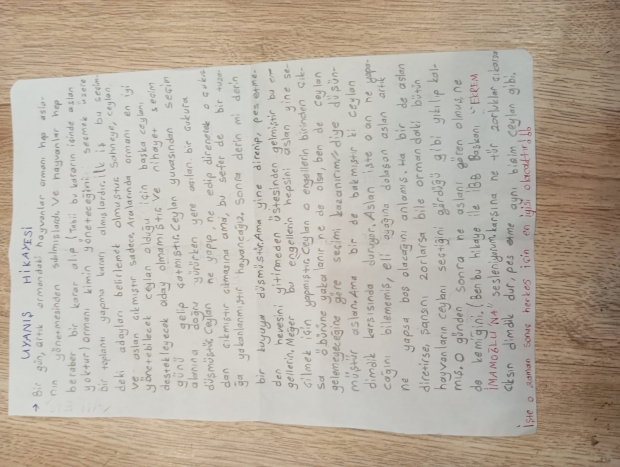 UYANIŞ HİKAYESİ
→ Bir gün, artık ormandaki hayvanlar ormanı hep aslı-
nın yönetmesinden sıkılmışlardı. Ve hayvanlar hep
beraber bir karar alıp (Tabii bu kararın içinde aslan
yoktur) ormanı kimin yöneteceğini seçmek üzere
bir toplantı yapma kararı almışlardır. İlk iş bu seçim-
deki adayları belirlemek olmuştur. Sahneye, ceylan
ve aslan çıkmıştır sadece. Aralarında ormanı en iyi
yönetebilecek ceylan olduğu için başka ceylanı
destekleyecek aday olmamıştır. Ve nihayet seçim
günü gelip çatmıştır. Ceylan yuvasından seçim
alanına doğru yürürken yere aslan bir çukura
düşmüştür. Ceylan ne yapıp ne edip direnerek o çukur-
dan çıkmıştır çıkmasına ama, bu sefer de bir tuza-
ğa yakalanmıştır hayvancağız. Sonra derin mi derin
bir kuyuya düşmüştür. Ama yine direnip, pes etme-
den hevesini yitirmeden üstesinden gelmiştir bu en-
gellerin. Meğer bu engellerin hepsini aslan yine se-
çilmek için yapmıştır. Ceylan o engellerin birinden çık-
sa öbürüne yakalanır ne de olsa, ben de ceylan
gelemeyeceğine göre seçimi kazanırım diye düşün-
müştür aslan. Ama bir de bakmıştır ki Ceylan
dimdik karşısında duruyor. Aslan işte o an ne yapa-
cağını bilememiş, eli ayağına dolaşan aslan artık
ne yapsa boş olacağını anlamış. Ha bir de aslan
diretirse, şansını zorlarsa bile ormandaki bütün
hayvanların ceylanı seçtiğini gördüğü gibi yıkılıp kal-
mış. O günden sonra ne aslanı gören olmuş, ne
de kemiğini. (Ben bu hikaye ile İBB Başkanı EKREM
İMAMOĞLU'NA sesleniyorum) karşına ne tür zorluklar çıkarsa
çıksın dimdik dur, pes etme aynı bizim ceylan gibi,
işte o zaman sonuç herkes için en iyisi olacaktır